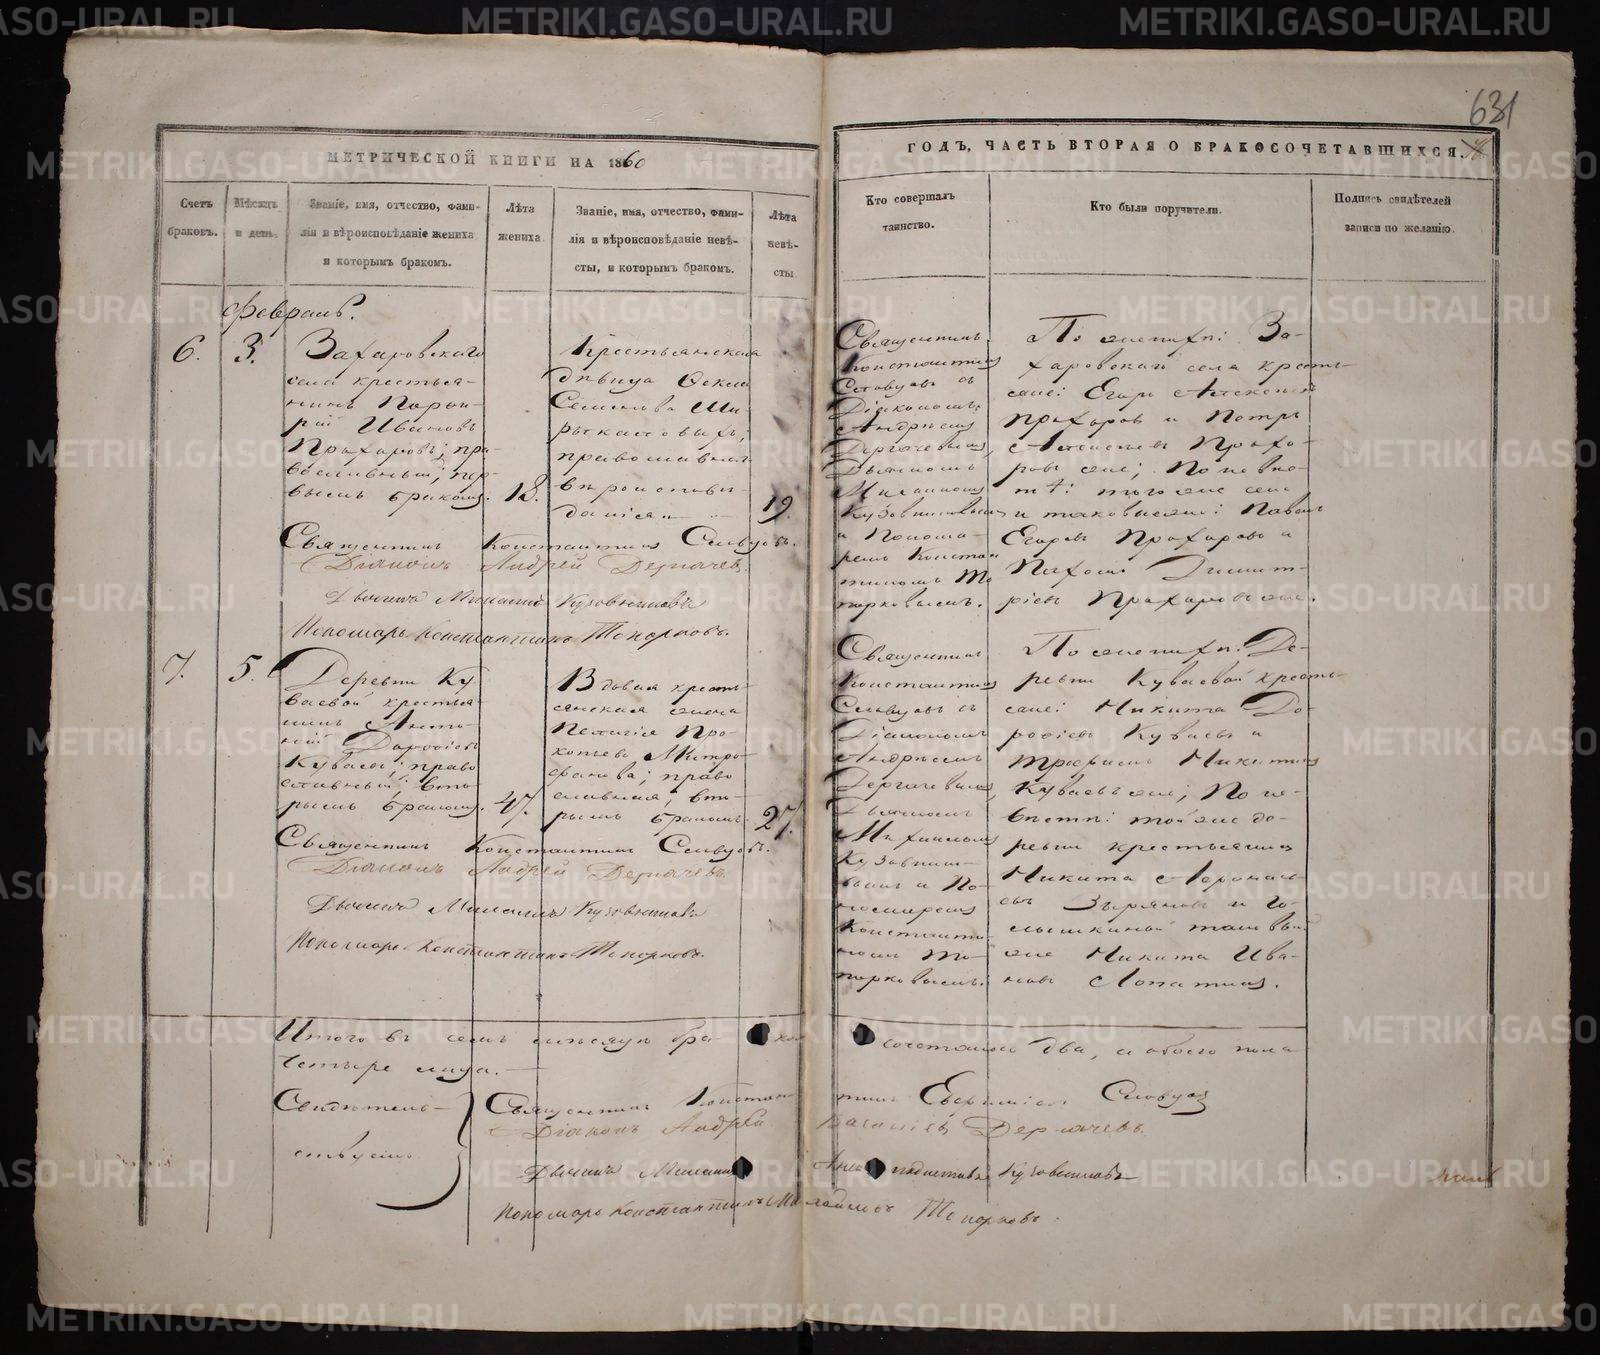 631
МЕТРИЧЕСКОЙ КНИГИ НА 1860
ГОДЪ, ЧАСТЬ ВТОРАЯ О БРАКОСОЧЕТАВШИХСЯ.
Счетъ
браковъ.
Мѣсяцъ
и день.
Званіе, имя, отчество, фами-
лія и вѣроисповѣданіе жениха
и которымъ бракомъ.
Лѣта
жениха.
Званіе, имя, отчество, фами-
лія и вѣроисповѣданіе невѣ-
сты, и которымъ бракомъ.
Лѣта
невѣ-
сты
Кто совершалъ
таинство.
Кто были поручители.
Подпись свидѣтелей
записи по желанію.
Февраль.
6.
3.
Захаровскаго
села крестья-
нинъ Порфи-
рій Ивановъ
Прохаровъ; пра-
вославный; пер-
вымъ бракомъ.
18.
Крестьянская
дѣвица
Семенова
православнаго
вѣроисповѣ-
данія
19.
Священникъ
Константинъ
Словцовъ съ
Діакономъ
Андреемъ
Дергачевымъ,
Дьячкомъ
Михаиломъ
Кузовниковымъ
и Понома-
ремъ Констан
тиномъ То
порковымъ.
По женихѣ: За-
харовскаго села кресть-
яне: Егоръ Алексѣевъ
Прохаровъ и Петръ
Алексѣевъ Прохо-
ровъ же; По невѣс-
тѣ: того же села
и таковыеже: Павелъ
Егоровъ Прохаровъ и
Пахомъ Димит-
ріевъ Прохаровъ же.
Священникъ Константинъ Словцовъ.
Діаконъ Андрей Дергачевъ.
Дьячекъ Михаилъ Кузовниковъ
Пономарь Константинъ Топорковъ.
7.
5.
Деревни Ку
ваевой крестья-
нинъ Анто-
ній Дорофіевъ
Куваевъ; право
славный; вто-
рымъ бракомъ.
47.
Вдовая кресть-
янская жена
Пелагія Про-
копьева Митро-
фанова; право
славная; вто-
рымъ бракомъ.
27.
Священникъ
Константинъ
Словцовъ съ
Діакономъ
Андреемъ
Дергачевымъ,
Дьячкомъ
Михаиломъ
Кузовнико-
вымъ и По-
номаремъ
Константи-
номъ То-
порковымъ.
По женихѣ: Де-
ревни Куваевой кресть-
яне: Никита До-
рофіевъ Куваевъ и
Трофимъ Никитинъ
Куваевъ же; По не-
вѣстѣ: той же де-
ревни крестьянинъ
Никита
Зыряновъ и Го-
лышкиной таковый
же Никита Ива-
новъ Лопатинъ.
Священникъ Константинъ Словцовъ.
Діаконъ Андрей Дергачевъ
Дьячекъ Михаилъ Кузовниковъ
Пономарь Константинъ Топорковъ.
Итого въ семъ мѣсяцѣ бра сочеталось два, а обоего пола
четыре лица.
Свидѣтель-
ствуемъ:
Священникъ Констан тинъ Евфиміевъ Словцовъ
Діаконъ Андрей Василіевъ Дергачевъ.
Дьячекъ Михаилъ Кузовниковъ
Пономарь Константинъ Михайловъ Топорковъ.
METRIKI.GASO-URAL.RU